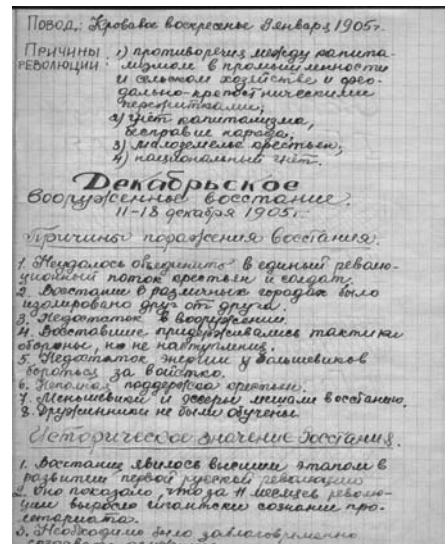 Повод: Кровавое воскресенье 9 января 1905 г.
Причины революции:
1) противоречия между капита-
лизмом в промышленности
и сельском хозяйстве и фео-
дально-крепостническими
пережитками;
2) гнёт капитализма,
бесправие народа;
3) малоземелье крестьян;
4) национальный гнёт.
Декабрьское
вооруженное восстание.
11-18 декабря 1905 г.
Причины поражения восстания.
1. Неудалось объединить в единый револю-
ционный поток крестьян и солдат.
2. Восстание в различных городах было
изолировано друг от друга.
3. Недостаток в вооружении.
4. Восставшие придерживались тактики
обороны, но не наступления.
5. Недостаток энергии у большевиков
бороться за войско.
6. Неполная поддержка крестьян.
7. Меньшевики и эсеры мешали восстанию.
8. Дружинники не были обучены
Историческое значение восстания.
1. Восстание явилось высшим этапом в
развитии первой русской революции
2. Оно показало, что за 11 месяцев револю-
ции выросло гигантски сознание про-
летариата.
3. Необходимо было заблаговременно